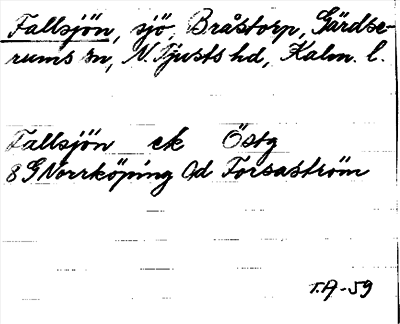 Fallsjön, sjö, Bråstorp, Gärdse-
rums sn, N. Tjusts hd, Kalm. l.
Fallsjön ek Östg
8 G Norrköping 0d Forsaström
T.A-59